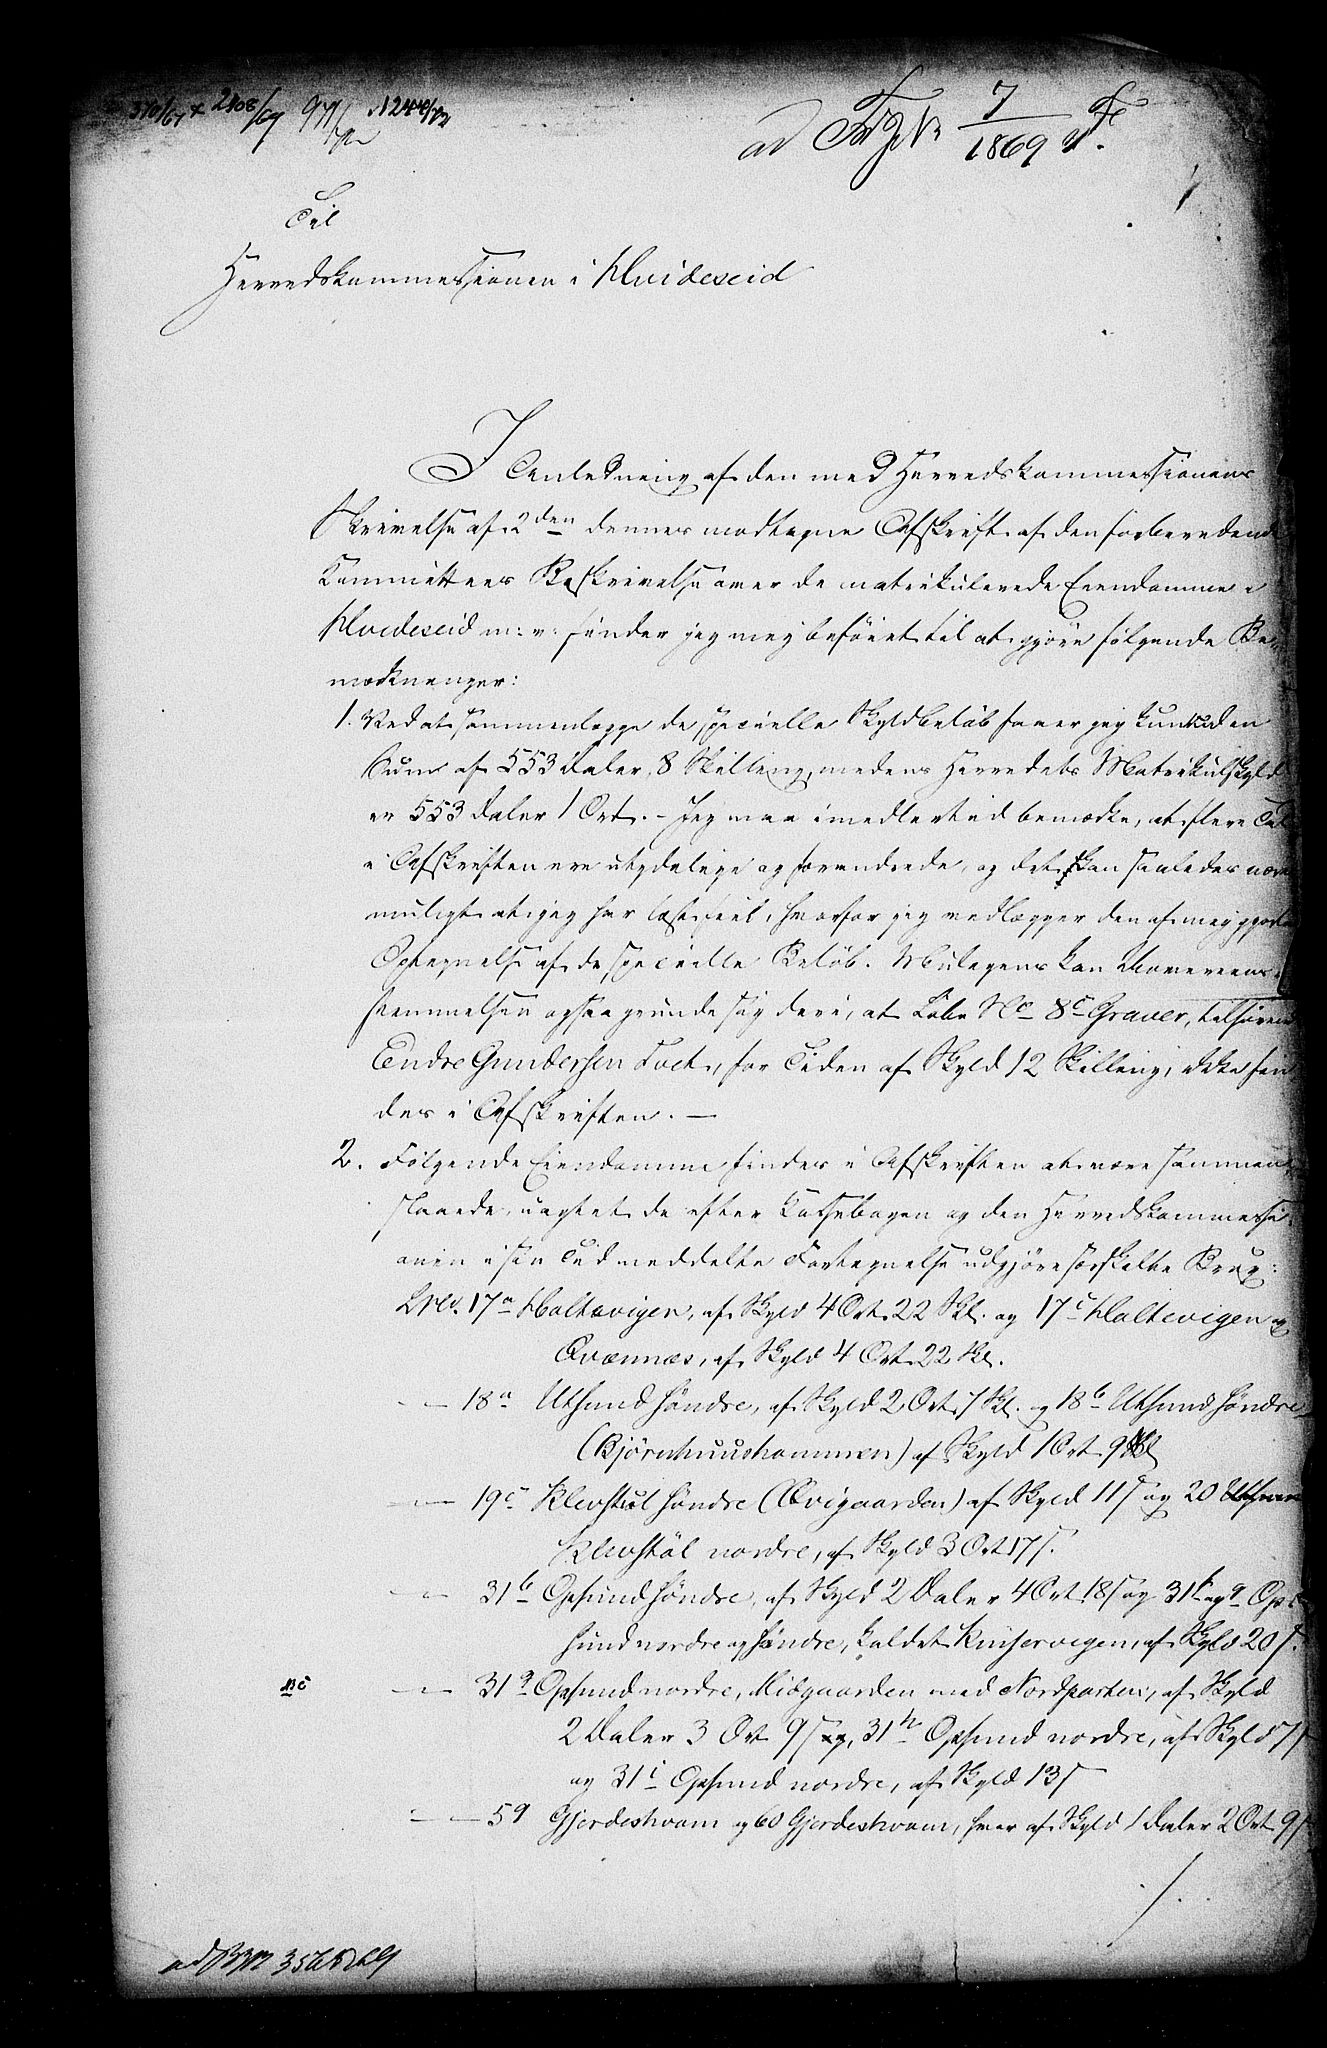 ad 7/1869
Til
Herredskommissionen i Hvideseid
I Anledning af den med Herredskommissionens
Skrivelse af 2den dennes modtagne Afskrift af den forberedende
Kommittees Beskrivelse over de matrikulerede Eiendomme i
Hvideseid m: v: finder jeg mig beföiet til at gjöre fölgende Be-
mærkninger:
1. Ved at sammenlægge de specielle Skyldbelöb faaer jeg kun en
Sum af 553 Daler, 8 Skilling, medens Herredets Matrikulskyld
er 553 Daler 1 Ort. - Jeg maa imedlertid bemærke, at flere Tal
i Afskriften ere utydelige og forandrede, og det kan saaledes være
muligt at jeg har læst feil, hvorfor jeg vedlægger den af mig gjorte
Optegnelse af de specielle Belöb. Muligens kan Uoverens-
stemmelsen ogsaa grunde sig deri, at Löbe No 8c Graver, tilhörende
Endre Gundersen Toet, for Tiden af Skyld 12 Skilling, ikke fin
des i Afskriften. —
2. Fölgende Eiendomme findes i Afskriften at være sammen-
slaaede, uagtet de efter Kassebogen og den Herredskommissi-
onen i sin Tid meddelte Fortegnelse udgjöre særskilte Brug:
Lno. 17a Holtevigen, af Skyld 4 Ort 22 Skl. og 17c Holtevigen og
Qvænnæs, af Skyld 4 Ort 22 Skl.
— 18a Utsund söndre, af Skyld 2 Ort 7 Skl. og 18b Utsund söndre
(Björnhuushammeren) af Skyld 1 Ort 9 Skl
— 19c Klevstöl söndre (Övigaarden) af Skyld 11 s og 20
Klevstöl nordre, af Skyld 3 Ort 17 s.
— 31b Opsund söndre, af Skyld 2 Daler 4 Ort 18 s og 31 og Op-
sund nordre og söndre, kaldet af Skyld 20 s.
— 31g Opsund nordre, Midgaarden med Nordparten, af Skyld
2 Daler 3 Ort 9 s, 31h Opsund nordre, af Skyld 17 s
og 31i Opsund nordre, af Skyld 13 s
— 59 Gjerdeshvam og 60 Gjerdeshvam, hver af Skyld 1 Daler 2 Ort 9 s
./.